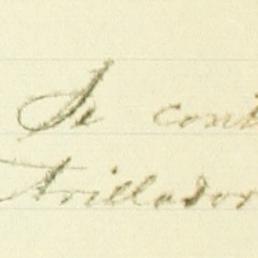 Se cont
Trillador